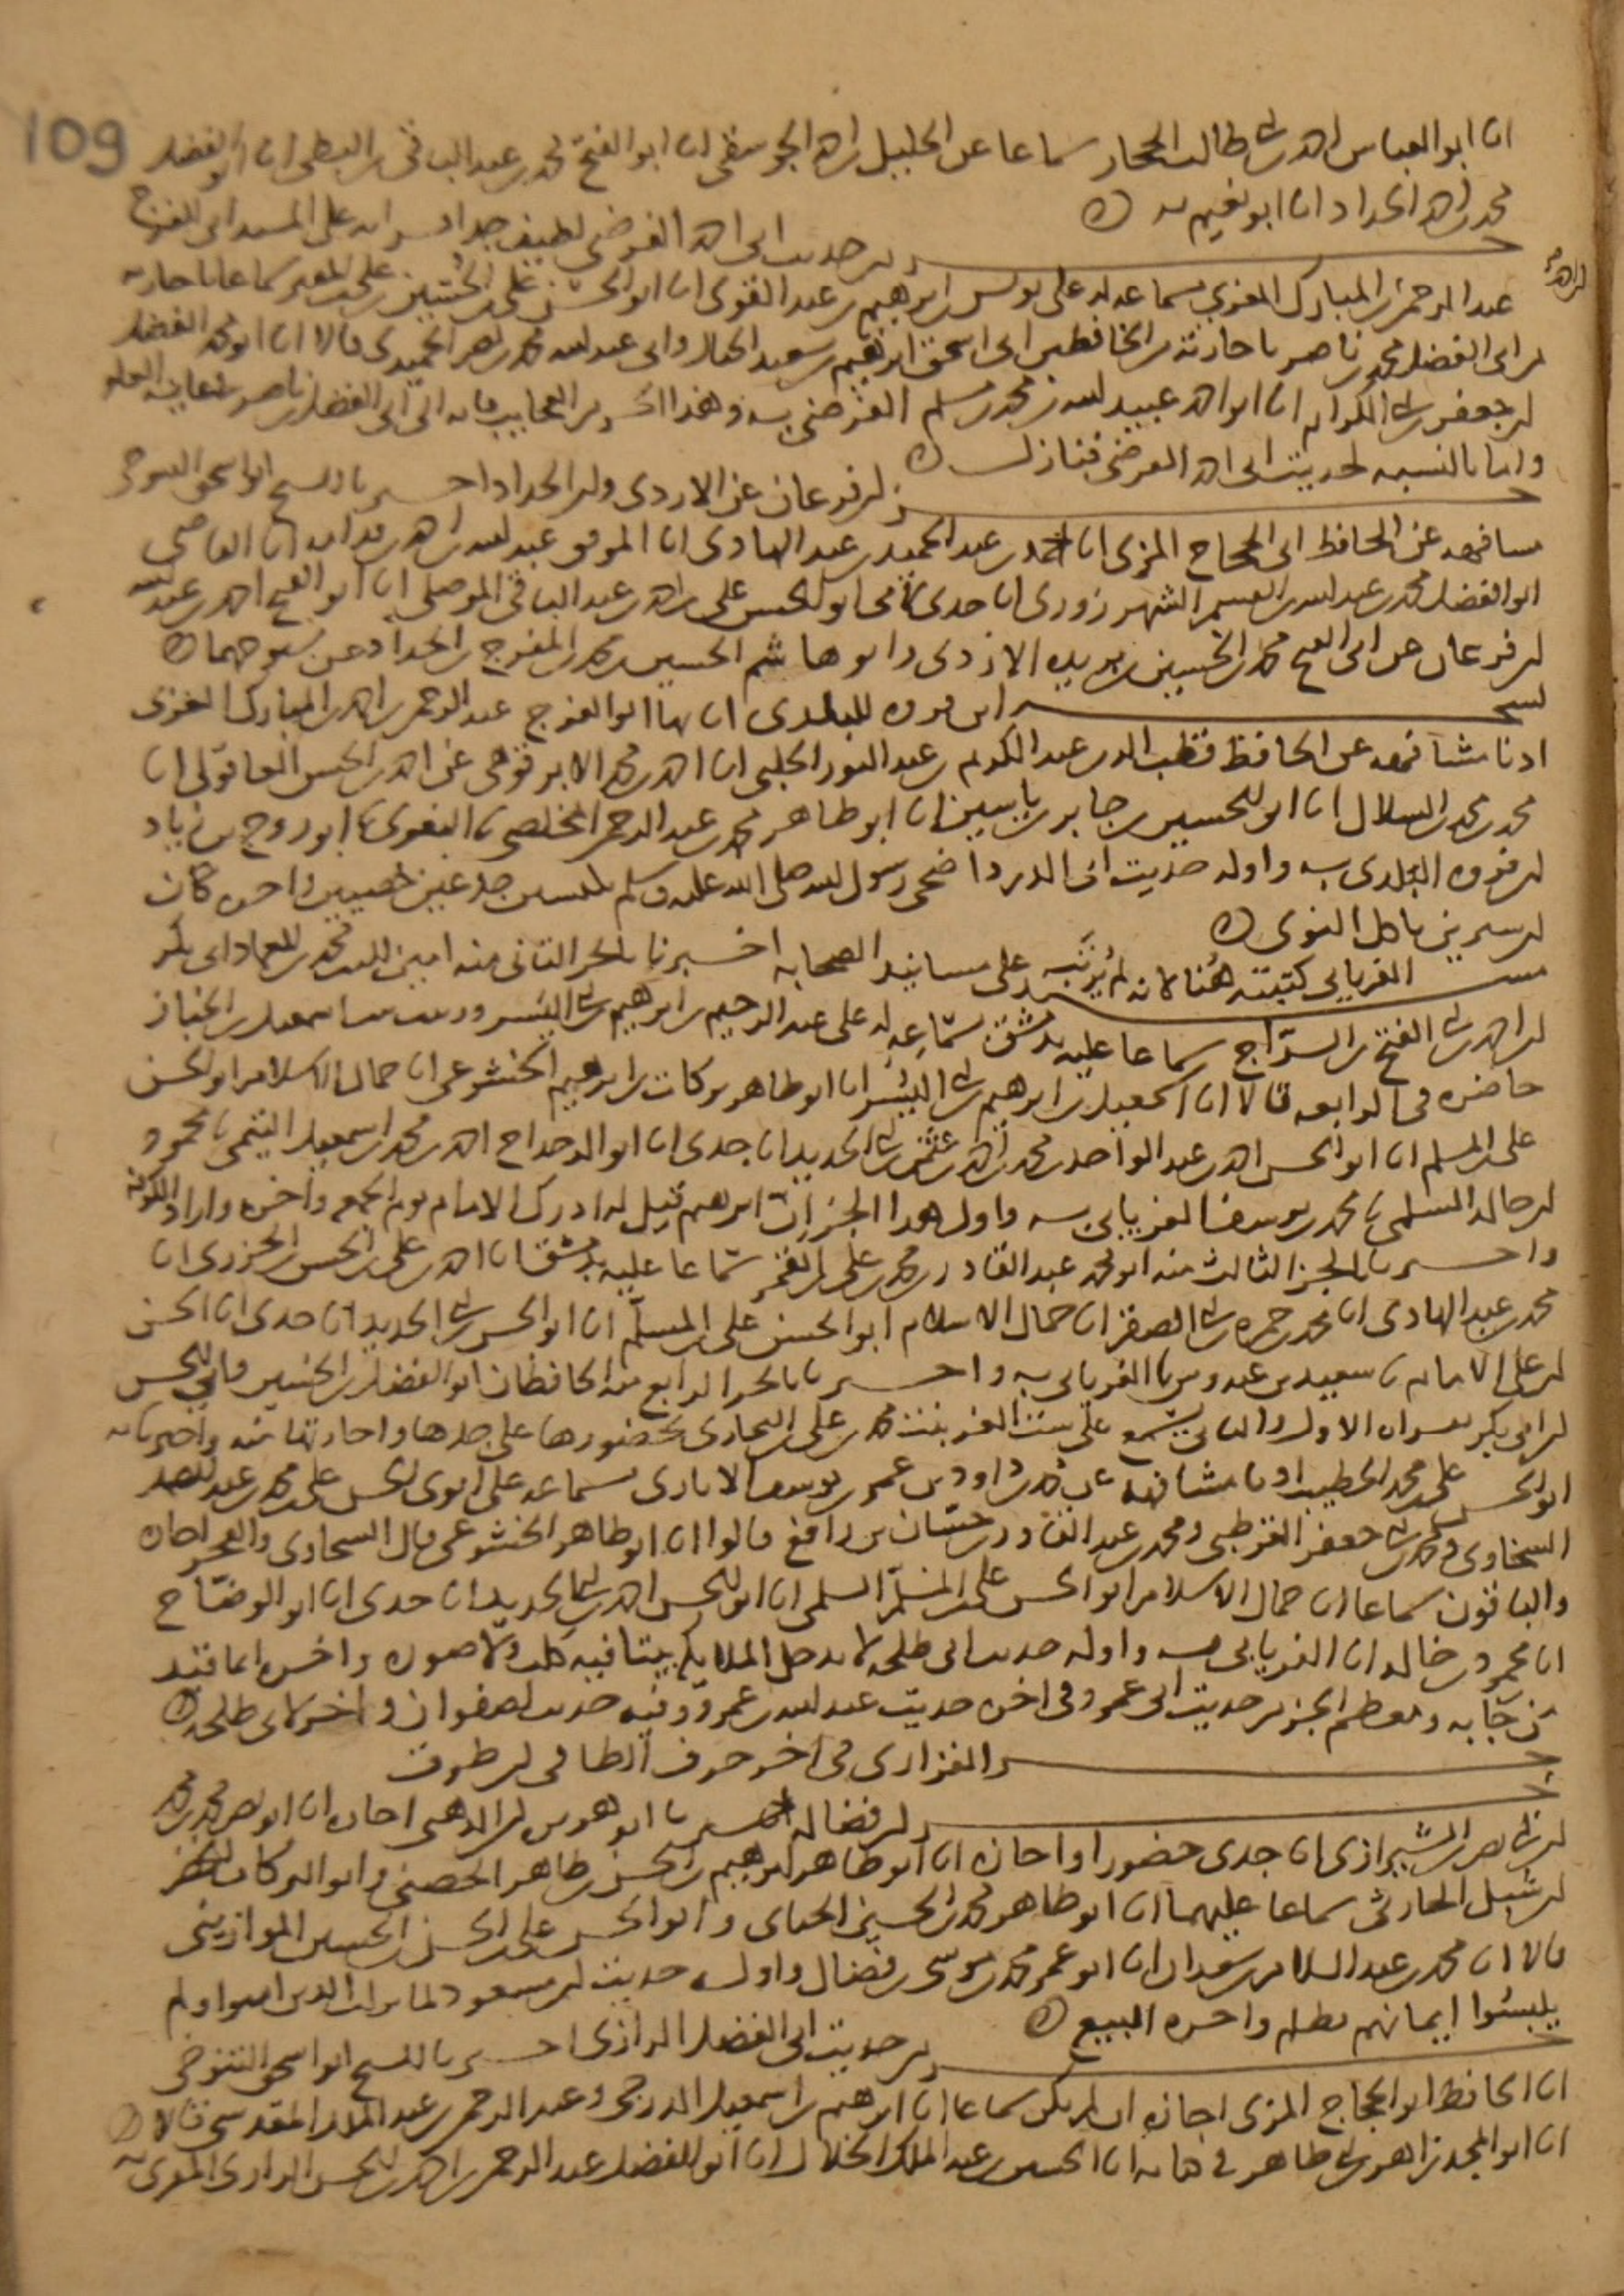 109
انا ابو العباس احمد بن ابي طالب الحجار سماعا عن الخليل بن احمد الجوسقي انا ابو الفتح محمد بن عبد الباقي بن البطي انا ابو الفضل
محمد بن احمد الحداد انا ابو نعيم به
جز من حديث ابي احمد الفرضي لطيف جدا على المسند ابي الفرج
عبد الرحمن بن المبارك الغزي بسماعه له على يونس بن ابرهيم بن عبد القوي انا ابو الحسن علي بن الحسين بن علي بن المقير سماعا باجازته
من ابي الفضل محمد بن ناصر باجازته من الحافظين ابي اسحق ابرهيم بن سعيد الحبال وابي عبد الله محمد بن ابي نصر الحميدي قالا انا ابو محمد الفضل
ابن جعفر بن ابي الكرام انا ابو احمد عبيد الله بن محمد بن ابي مسلم الفرضي به وهذا من العجايب فانه الى ابي الفضل بن ناصر بغاية العلو
واما بالنسبة لحديث ابي احمد الفرضي فنازل
جز ابن فرغان عن الازدي وابن الحداد اخبرنا به الشيخ ابو اسحق التنوخي
مشافهة عن الحافظ ابي الحجاج المزي انا احمد بن عبد الحميد بن عبد الهادي انا الموفق عبد الله بن احمد بن قدامة انا القاضي
ابو الفضل محمد بن عبد الله بن القسم الشهرزوري انا جدي لامي ابو الحسن علي بن احمد بن عبد الباقي الموصلي انا ابو الفتح احمد بن عبيد الله
ابن فرغان عن ابي الفتح محمد بن الحسين بن بريدة الازدي وابو هاشم الحسين بن محمد بن المفرج بن الحداد عن شيوخهما
نسخة ابن فروه البلدي انا بها ابو الفرج عبد الرحمن بن احمد بن المبارك الغزي
اذنا مشافهة عن الحافظ قطب الدين عبد الكريم بن عبد النور الحلبي انا احمد بن محمد الابرقوهي عن احمد بن الحسن العاقولي انا
محمد بن محمد بن السلال انا ابو الحسين جابر بن ياسين انا ابو طاهر محمد بن عبد الرحمن المخلص نا البغوي نا ابو روح بن زياد
ابن فروه البلدي به واوله حديث ابي الدرداء ضحى رسول الله صلى الله عليه وسلم بكبشين جذعين خصيين واخره كان
ابن سيرين ياكل النوى
مسند الفريابي كتبته هنا لانه لم يرتبه على مسانيد الصحابة اخبرنا بالجز الثاني منه امين الدين محمد بن العماد ابي بكر
ابن احمد بن ابي الفتح بن السراج سماعا عليه بدمشق بسماعه له على عبد الرحيم بن ابرهيم بن ابي اليسر وزينب بنت اسمعيل بن الخباز
حاضره في الرابعة قالا انا اسمعيل بن ابرهيم بن ابي اليسر انا ابو طاهر بركات بن ابرهيم الخشوعي انا جمال الاسلام ابو الحسن
علي بن المسلم انا ابو الحسن احمد بن عبد الواحد بن محمد بن احمد بن عثمن بن ابي الحديد انا جدي انا ابو الدحداح احمد بن محمد بن اسمعيل التميمي نا محمود
ابن خالد السلمي نا محمد بن يوسف الفريابي به واول هذا الجزء ان ابرهيم قيل له ادرك الامام يوم الجمعة واخره واراد الكوفة
واخبرنا بالجز الثالث منه ابو محمد عبد القادر بن محمد بن علي بن القمر سماعا عليه بدمشق انا احمد بن علي بن الحسن الجزري انا
محمد بن عبد الهادي انا محمد بن حمزة بن ابي الصقر انا جمال الاسلام ابو الحسن علي بن المسلم انا ابو الحسن بن ابي الحديد انا جدي انا الحسن
ابن علي الامام نا سعيد بن عبدوس نا الفريابي به واخبرنا بالجز الرابع منه الحافظان ابو الفضل بن الحسين وابو الحسن
ابن ابي بكر الاول والثاني يسمع على ست العرب بنت محمد بن علي بن البخاري بحضورها على جدها واجازتها منه واخبرنا به
ابو الحسن علي بن محمد الخطيب اذنا مشافهة عن محمد بن داود بن عمر بن يوسف الاباري بسماعه على ابوي الحسن علي بن محمد بن عبد الصمد
السخاوي ومحمد بن ابي جعفر القرطبي ومحمد بن عبد القادر بن حسان بن رافع قالوا انا ابو طاهر الخشوعي قال السخاوي اجازة
والباقون سماعا انا جمال الاسلام ابو الحسن علي بن المسلم السلمي انا ابو الحسن احمد بن ابي الحديد انا جدي انا ابو الدحداح
انا محمود بن خالد انا الفريابي به واوله حديث ابي طلحة لا تدخل الملايكة بيتا فيه كلب ولا صورة واخره
ومعظم الجز من حديث ابن عمر وفي اخره حديث عبد الله بن عمرو وفيه حديث لصفوان واخر لابي طلحة
جز الفزاري في اخر حرف الطا في ابن طوق
جز ابن فضالة اخبرنا ابو هريرة بن الذهبي اجازة انا ابو نصر محمد بن محمد
ابن ابي نصر الشيرازي انا جدي حضورا واجازة انا ابو طاهر ابرهيم بن الحسن بن طاهر الحصني وابو البركات الخضر
ابن شبل الحارثي سماعا عليهما انا ابو طاهر محمد بن الحسين الحنائي وابو الحسن علي بن الحسن بن الحسين الموازيني
قالا انا محمد بن عبد السلام بن سعدان انا ابو عمر محمد بن موسى بن فضالة واوله حديث ابن مسعود لما نزلت الذين امنوا ولم
يلبسوا ايمانهم بظلم واخره البيع
جز من حديث ابي الفضل الرازي اخبرنا به الشيخ ابو اسحق التنوخي
انا الحافظ ابو الحجاج المزي اجازة ان لم يكن سماعا انا ابرهيم بن اسمعيل الدرجي وعبد الرحمن بن عبد الملك المقدسي قالا
انا ابو المجد زاهر بن ابي طاهر في كتابه انا الحسين بن عبد الملك الخلال انا ابو الفضل عبد الرحمن بن احمد بن الحسن الرازي المقري به